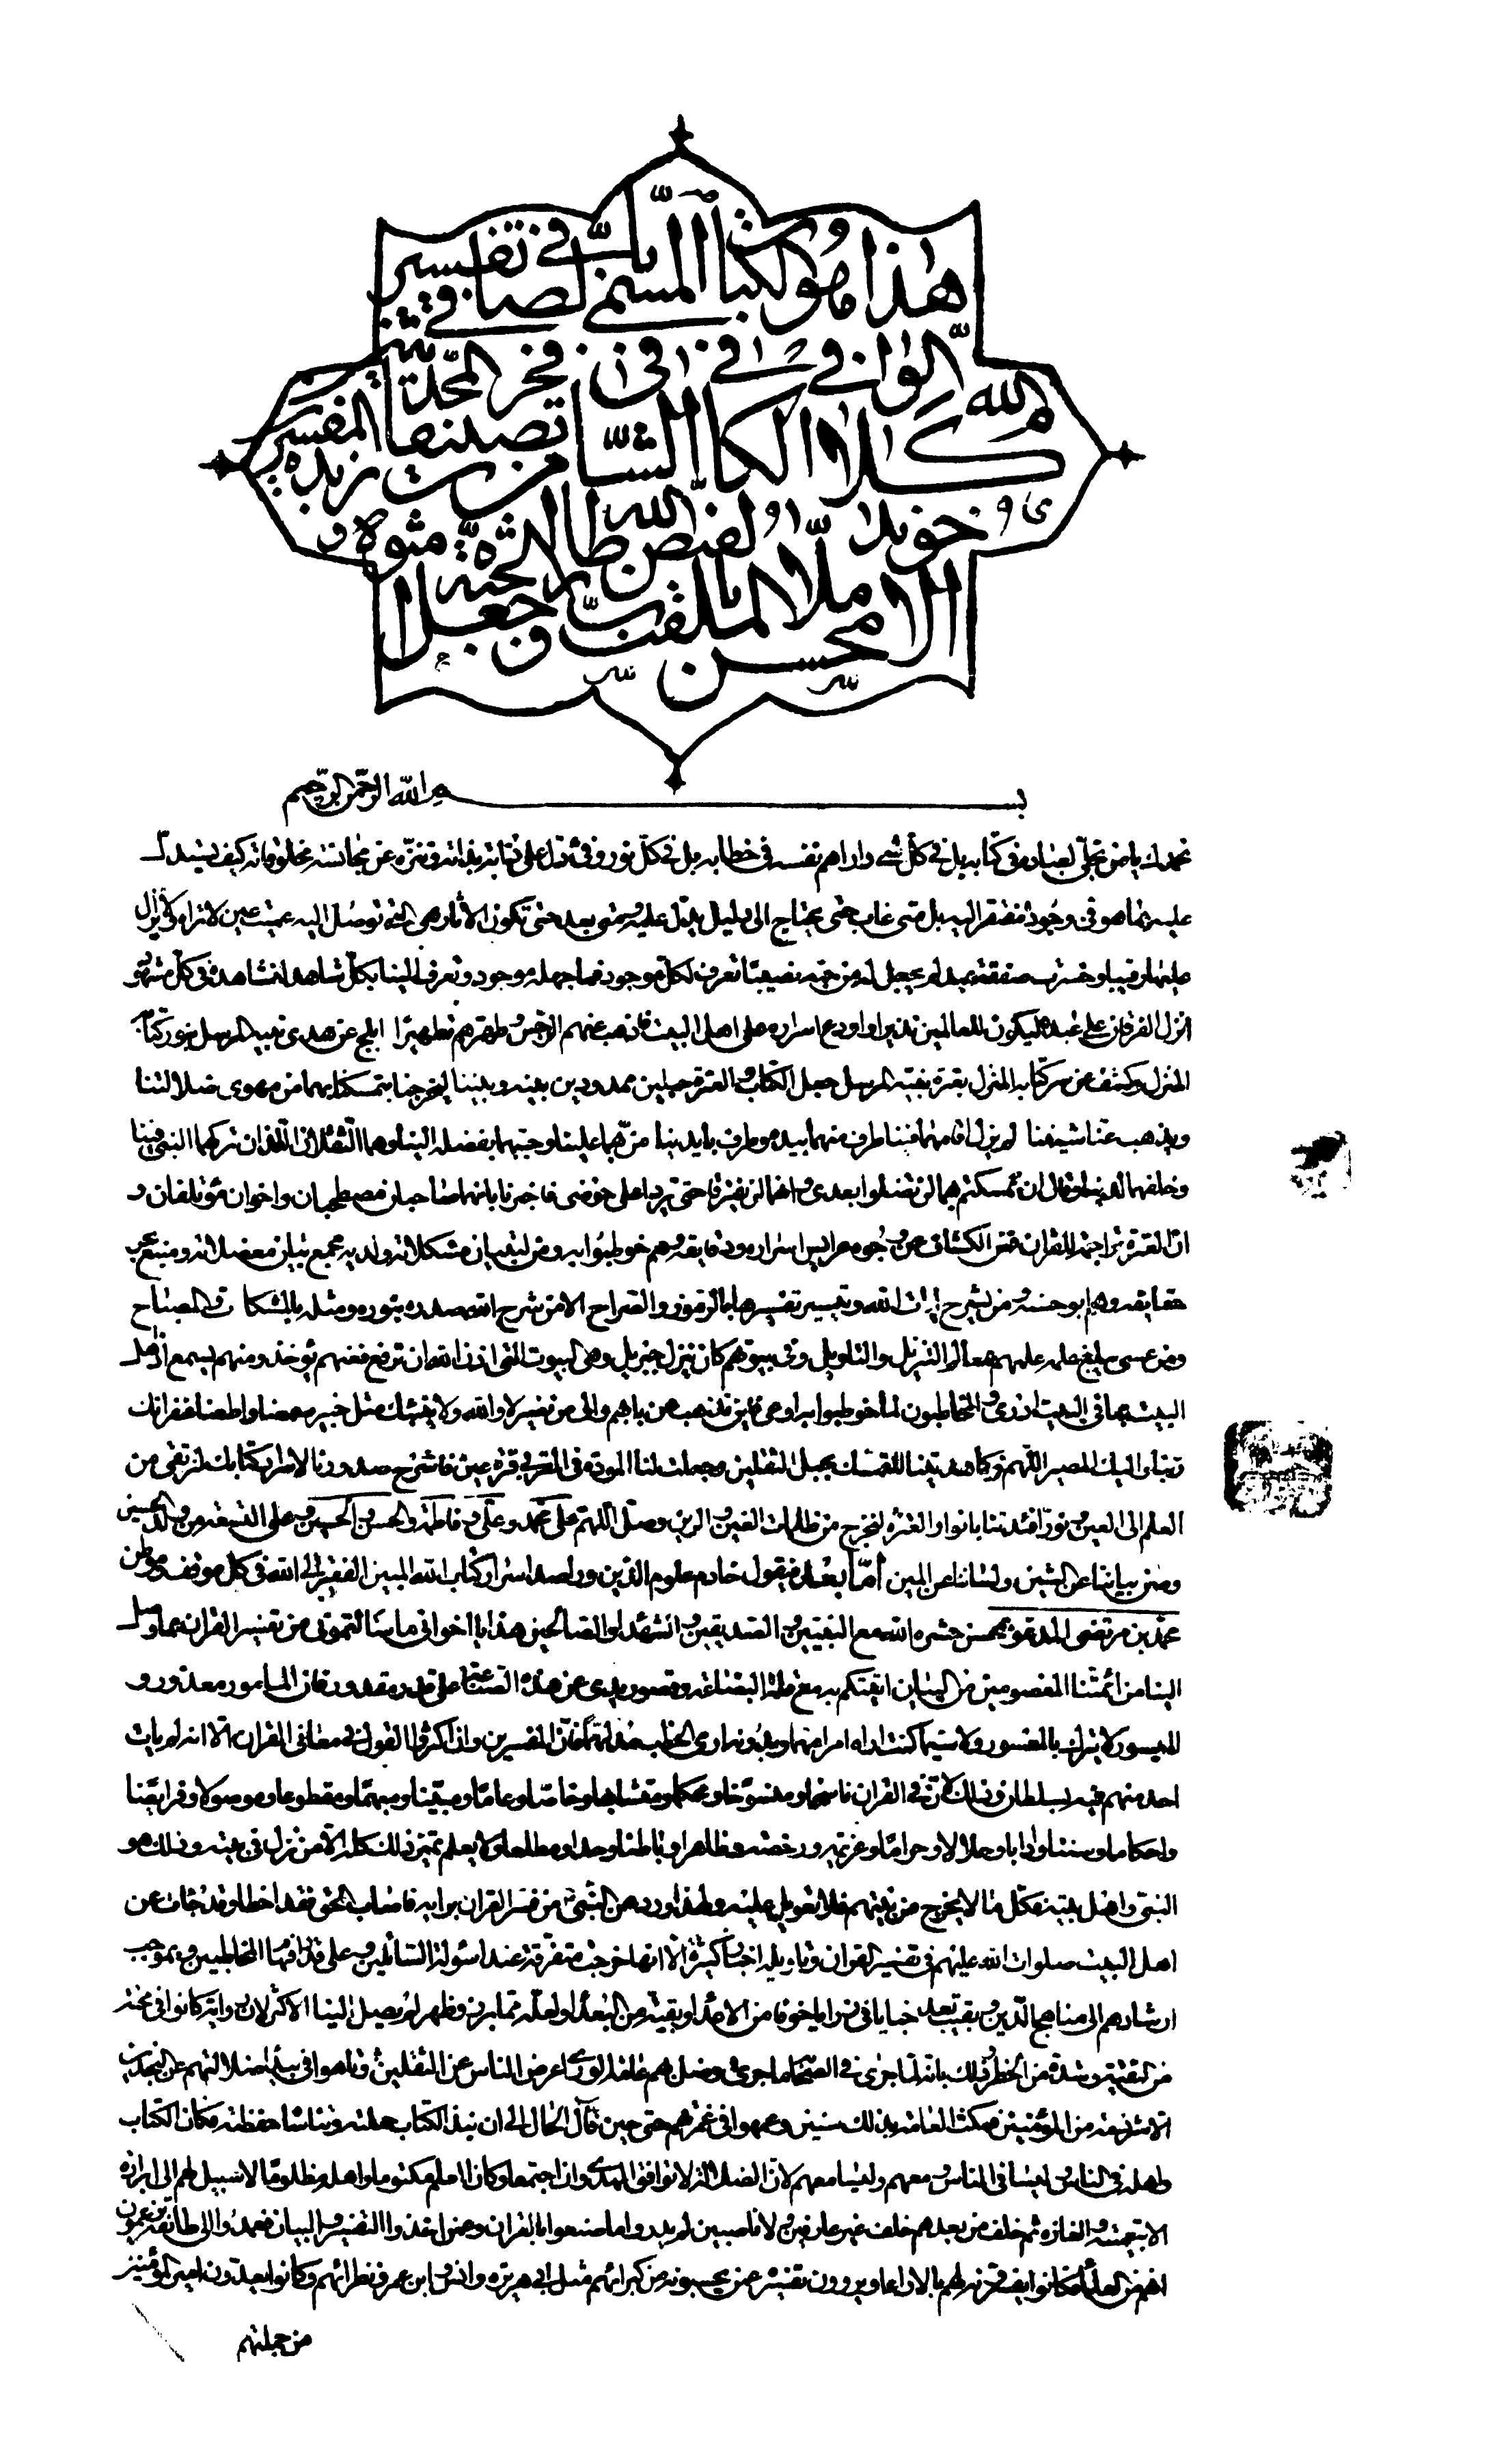 هذا هو كتاب المسمى بالصافي في تفسير
كلام الله الوافي الكافي الشافي من تصنيفات فخر المحدثين زبدة المفسرين
ملا محسن الملقب بالفيض طاب الله ثراه وجعل الجنة مثواه
بسم الله الرحمن الرحيم
نحمدك يا من تجلى لعباده في كتابه بل في كل شئ واراهم نفسه في خطابه بل في كل نور وفئ دل على ذاته بذاته وتنزه عن مجانسة مخلوقاته كيف يستدل
عليه بما هو في وجوده مفتقر اليه بل متى غاب حتى يحتاج الى دليل يدل عليه ومتى بعد حتى تكون الاثار هي التي توصل اليه عميت عين لا تراه ولا يزال
عليها رقيبا وخسرت صفقة عبد لم يجعل له من حبه نصيبا تعرف لكل موجود فما جهله موجود وتعرف الينا بكل شئ لنشاهده في كل مشهود
انزل الفرقان على عبده ليكون للعالمين نذيرا واودع اسراره اهل البيت فاذهب عنهم الرجس وطهرهم تطهيرا ابلج عن هدى نبيه المرسل بنور كتابه
المنزل وكشف عن سر كتابه المنزل بعترة نبيه المرسل جعل الكتاب والعترة حبلين ممدودين بينه وبيننا ليخرجنا بتمسكنا بهما من مهوى ضلالتنا
ويذهب عنا شيننا لم يزل اقامهما فينا طرف منهما بيده وطرف بايدينا من بهما علينا وحببهما بفضله الينا وهما الثقلان اللذان تركهما النبي فينا
وخلفهما لدينا وقال ان تمسكتم بهما لن تضلوا بعدي وانهما لن يفترقا حتى يردا على حوضي فاخبرنا بانهما صاحبان مصطحبان واخوان مؤتلفان و
ان العترة تراجمة للقران فمن الكشاف عن وجوه عرايس اسراره ودقايقه وهم خوطبوا به ومن لتبيان مشكلاته ولديهم مجمع بيان معضلاته ومنبع بحر
حقايقه وهم ابو حسنه ومن يشرح ايات الله وتيسير تفسيرها بالرموز والصراح الا من شرح الله صدره بنوره ومثله بالمشكات والمصباح
ومن عسى يبلغ علمه علمهم بمعالم التنزيل والتاويل وفي بيوتهم كان ينزل جبريل وهي البيوت التي اذن الله ان ترفع فعنهم يؤخذ ومنهم يسمع اذ اهل
البيت بما في البيت ادرى والمخاطبون لما خوطبوا به اوعى فاين نذهب عن بابهم والى من نصير لا والله ولا ينبئك مثل خبير سمعنا واطعنا غفرانك
ربنا واليك المصير اللهم فكما هديتنا للتمسك بحبل الثقلين وجعلت لنا المودة في القربى قرة عين فاشرح صدورنا لاسرار كتابك لنرتقي من
العلم الى العين ونور افئدتنا بانوار العترة لنخرج من ظلمات الغين والرين وصل اللهم على محمد وعلي وفاطمة والحسن والحسين وعلى التسعة من ولد الحسين
وصن بياننا عن الشين ولساننا عن المين اما بعد فيقول خادم علوم الدين وراصد اسرار كتاب الله المبين الفقير الى الله في كل موقف وموطن
محمد بن مرتضى المدعو بمحسن حشره الله مع النبيين والصديقين والشهداء والصالحين هذا يا اخواني ما سالتموني من تفسير القران بما وصل
الينا من ائمتنا المعصومين من البيان اتيتكم به مع قلة البضاعة وقصور يدي عن هذه الصناعة على قدر مقدور فان المامور معذور و
الميسور لا يترك بالمعسور ولا سيما كنت اراه امرا مهما وبدونه ارى الخطب مدلهما فان المفسرين وان اكثروا القول في معاني القران الا انه لم يات
احد منهم فيه بسلطان وذلك لان في القران ناسخا ومنسوخا ومحكما ومتشابها وخاصا وعاما ومبينا ومبهما ومقطوعا وموصولا وفرايضا
واحكاما وسننا وادابا وحلالا وحراما وعزيمة ورخصة وظاهرا وباطنا وحدا ومطلعا ولا يعلم تميز ذلك كله الا من نزل في بيته وذلك هو
النبي واهل بيته فكل ما لا يخرج من بيتهم فلا تعويل عليه ولهذا ورد عن النبي من فسر القران برايه فاصاب الحق فقد اخطا وقد جائت عن
اهل البيت صلوات الله عليهم في تفسير القران وتاويله اخبار كثيرة الا انها خرجت متفرقة عند اسولة السائلين وعلى قدر افهام المخاطبين وبموجب
ارشادهم الى مناهج الدين وبقيت بعد خبايا في زوايا خوفا من الاعداء وتقية من البعداء ولعله مما برز وظهر لم يصل الينا الاكثر لان رواته كانوا في محنة
من التقية وشدة من الخطر وذلك بانه لما جرى في الصحابة ما جرى وضل بهم عامة الورى اعرض الناس عن الثقلين وتاهوا في بيداء ضلالتهم عن النجدين
الا شرذمة من المؤمنين فمكث العامة بذلك سنين وعمهوا في غمرتهم حتى حين فال الحال الى ان نبذ الكتاب حملته وتناساه حفظته فكان الكتاب
واهله في الناس وليسا في الناس ومعهم وليسا معهم لان الضلالة لا توافق الهدى وان اجتمعا وكان العلم مكتوما واهله مظلوما لا سبيل لهم الى ابرازه
الا بتعميته والغازه ثم خلف من بعدهم خلف غير عارفين ولا ناصبين لم يدروا ما صنعوا بالقران وعمن اخذوا التفسير والبيان فعمدوا الى طائفة يزعمون
انهم من العلماء فكانوا يفسرونه لهم بالاراء ويروون تفسيره عمن يحسبونه من كبرائهم مثل ابي هريرة وانس وابن عمر ونظرائهم وكانوا يعدون امير المؤمنين
من جملتهم